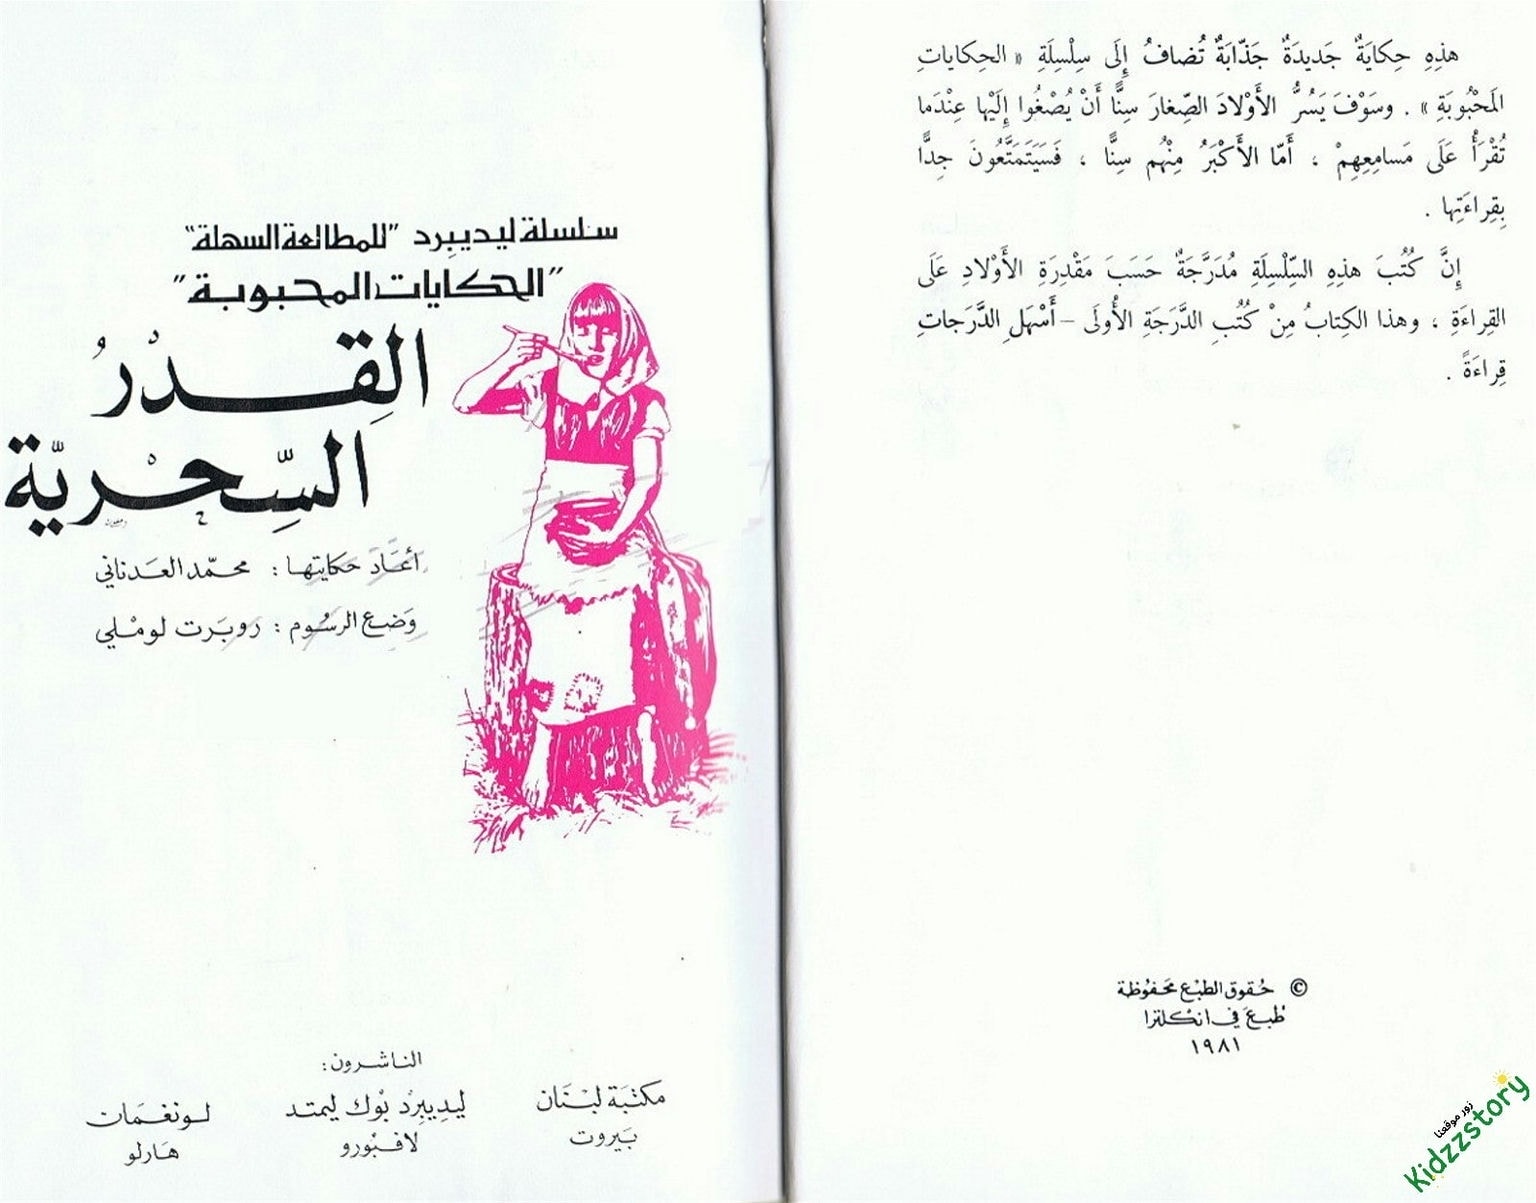 هذِهِ حِكايَةٌ جَديدَةٌ جَذّابَةٌ تُضافُ إِلَى سِلْسِلَةِ « الحِكاياتِ
المَحْبُوبَةِ » . وسَوْفَ يَسُرُّ الأَوْلادَ الصِّغارَ سِنًّا أَنْ يُصْغُوا إِلَيْها عِنْدَما
تُقْرَأُ عَلَى مَسامِعِهِمْ ، أَمّا الأَكْبَرُ مِنْهُم سِنًّا ، فَسَيَتَمَتَّعُونَ جِدًّا
بِقِراءَتِها .
إِنَّ كُتُبَ هذِهِ السِّلْسِلَةِ مُدَرَّجَةٌ حَسَبَ مَقْدِرَةِ الأَوْلادِ عَلَى
القِراءَةِ ، وهذا الكِتابُ مِنْ كُتُبِ الدَّرَجَةِ الأُولَى – أَسْهَلِ الدَّرَجاتِ
قِراءَةً .
© حُقوق الطَبْع مَحفُوظة
طُبعَ في انكلترا
١٩٨١
سلسلة ليديبِرد "للمطالعة السهلة"
"الحكايات المحبوبة"
القِدْرُ
السِّحْريّة
أعَادَ حكايتها : محمّد العَدناني
وَضع الرسُوم : روبَرت لومْلي
الناشرون:
مكتبَة لبْنَان
بَيروت
ليديبِرْد بوْك ليمتد
لافبُورو
لونغمَان
هَارلو
زور موقعنا
Kidzzstory